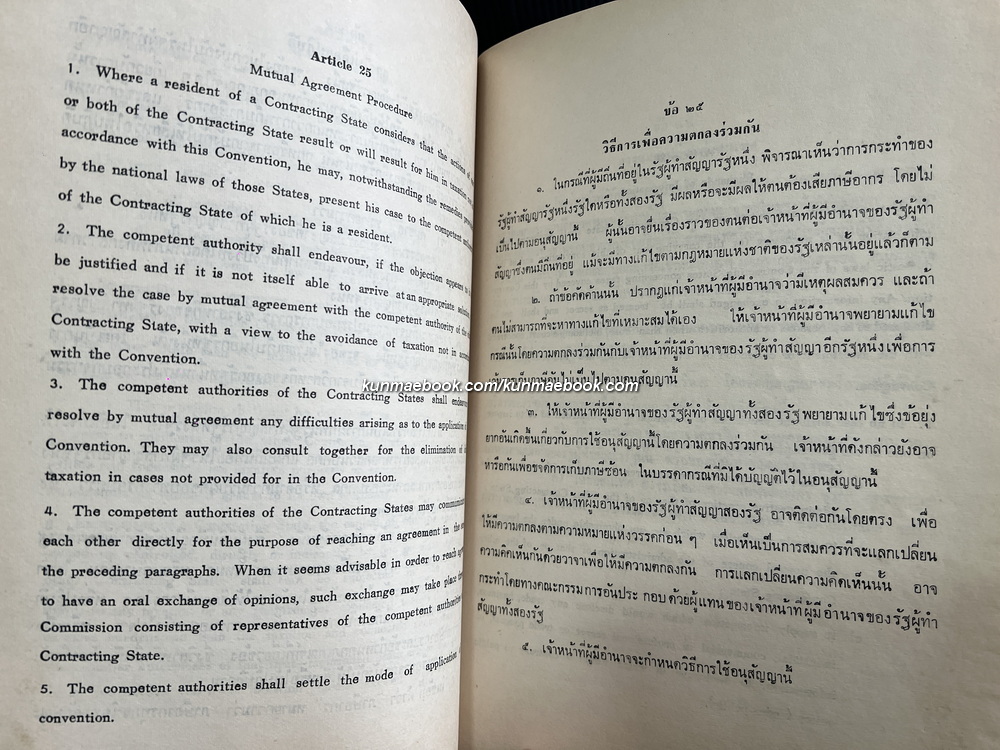 Article 25
Mutual Agreement Procedure
1. Where a resident of a Contracting State considers that the actions of
or both of the Contracting State result or will result for him in taxation
accordance with this Convention, he may, notwithstanding the remedies
by the national laws of those States, present his case to the competent
of the Contracting State of which he is a resident.
2. The competent authority shall endeavour, if the objection appears
be justified and if it is not itself able to arrive at an appropriate
resolve the case by mutual agreement with the competent authority of the
Contracting State, with a view to the avoidance of taxation not in
with the Convention.
3. The competent authorities of the Contracting States shall
resolve by mutual agreement any difficulties arising as to the application
Convention. They may also consult together for the elimination of
taxation in cases not provided for in the Convention.
4. The competent authorities of the Contracting States may
each other directly for the purpose of reaching an agreement in the
the preceding paragraphs. When it seems advisable in order to reach
to have an oral exchange of opinions, such exchange may take place
Commission consisting of representatives of the competent
Contracting State.
5. The competent authorities shall settle the mode of application
convention.
ข้อ ๒๕
วิธีการเพื่อความตกลงร่วมกัน
๑. ในกรณีที่ผู้มีถิ่นที่อยู่ในรัฐผู้ทำสัญญารัฐหนึ่ง พิจารณาเห็นว่าการกระทำของ
รัฐผู้ทำสัญญารัฐหนึ่งรัฐใดหรือทั้งสองรัฐ มีผลหรือจะมีผลให้ตนต้องเสียภาษีอากร โดยไม่
เป็นไปตามอนุสัญญานี้ ผู้นั้นอาจยื่นเรื่องราวของตนต่อเจ้าหน้าที่ผู้มีอำนาจของรัฐผู้ทำ
สัญญาซึ่งตนมีถิ่นที่อยู่ แม้จะมีทางแก้ไขตามกฎหมายแห่งชาติของรัฐเหล่านั้นอยู่แล้วก็ตาม
๒. ถ้าข้อคัดค้านนั้น ปรากฏแก่เจ้าหน้าที่ผู้มีอำนาจว่ามีเหตุผลสมควร และถ้า
ตนไม่สามารถที่จะหาทางแก้ไขที่เหมาะสมได้เอง ให้เจ้าหน้าที่ผู้มีอำนาจพยายามแก้ไข
กรณีนั้นโดยความตกลงร่วมกันกับเจ้าหน้าที่ผู้มีอำนาจของรัฐผู้ทำสัญญาอีกรัฐหนึ่งเพื่อการ
kunmaebook.com/kunmaebook.com
๓. ให้เจ้าหน้าที่ผู้มีอำนาจของรัฐผู้ทำสัญญาทั้งสองรัฐพยายามแก้ไขซึ่งข้อยุ่ง
ยากอันเกิดขึ้นเกี่ยวกับการใช้อนุสัญญานี้โดยความตกลงร่วมกัน เจ้าหน้าที่ดังกล่าวยังอาจ
หารือกันเพื่อขจัดการเก็บภาษีซ้อน ในบรรดากรณีที่มิได้บัญญัติไว้ในอนุสัญญานี้
๔. เจ้าหน้าที่ผู้มีอำนาจของรัฐผู้ทำสัญญาสองรัฐ อาจติดต่อกันโดยตรง เพื่อ
ให้มีความตกลงตามความหมายแห่งวรรคก่อน ๆ เมื่อเห็นเป็นการสมควรที่จะแลกเปลี่ยน
ความคิดเห็นกันด้วยวาจาเพื่อให้มีความตกลงกัน การแลกเปลี่ยนความคิดเห็นนั้น อาจ
กระทำโดยทางคณะกรรมการอันประกอบด้วยผู้แทนของเจ้าหน้าที่ผู้มีอำนาจของรัฐผู้ทำ
สัญญาทั้งสองรัฐ
๕. เจ้าหน้าที่ผู้มีอำนาจจะกำหนดวิธีการใช้อนุสัญญานี้